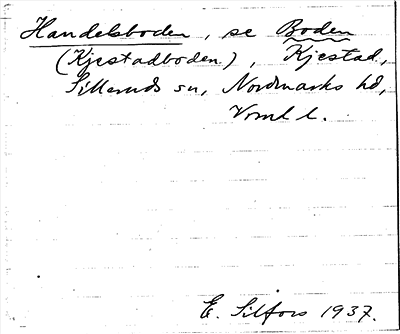 Handelsboden, se Boden
(Kjestadboden), Kjestad,
Silleruds sn, Nordmarks hd,
Vrml l.
E. Silfors 1937.